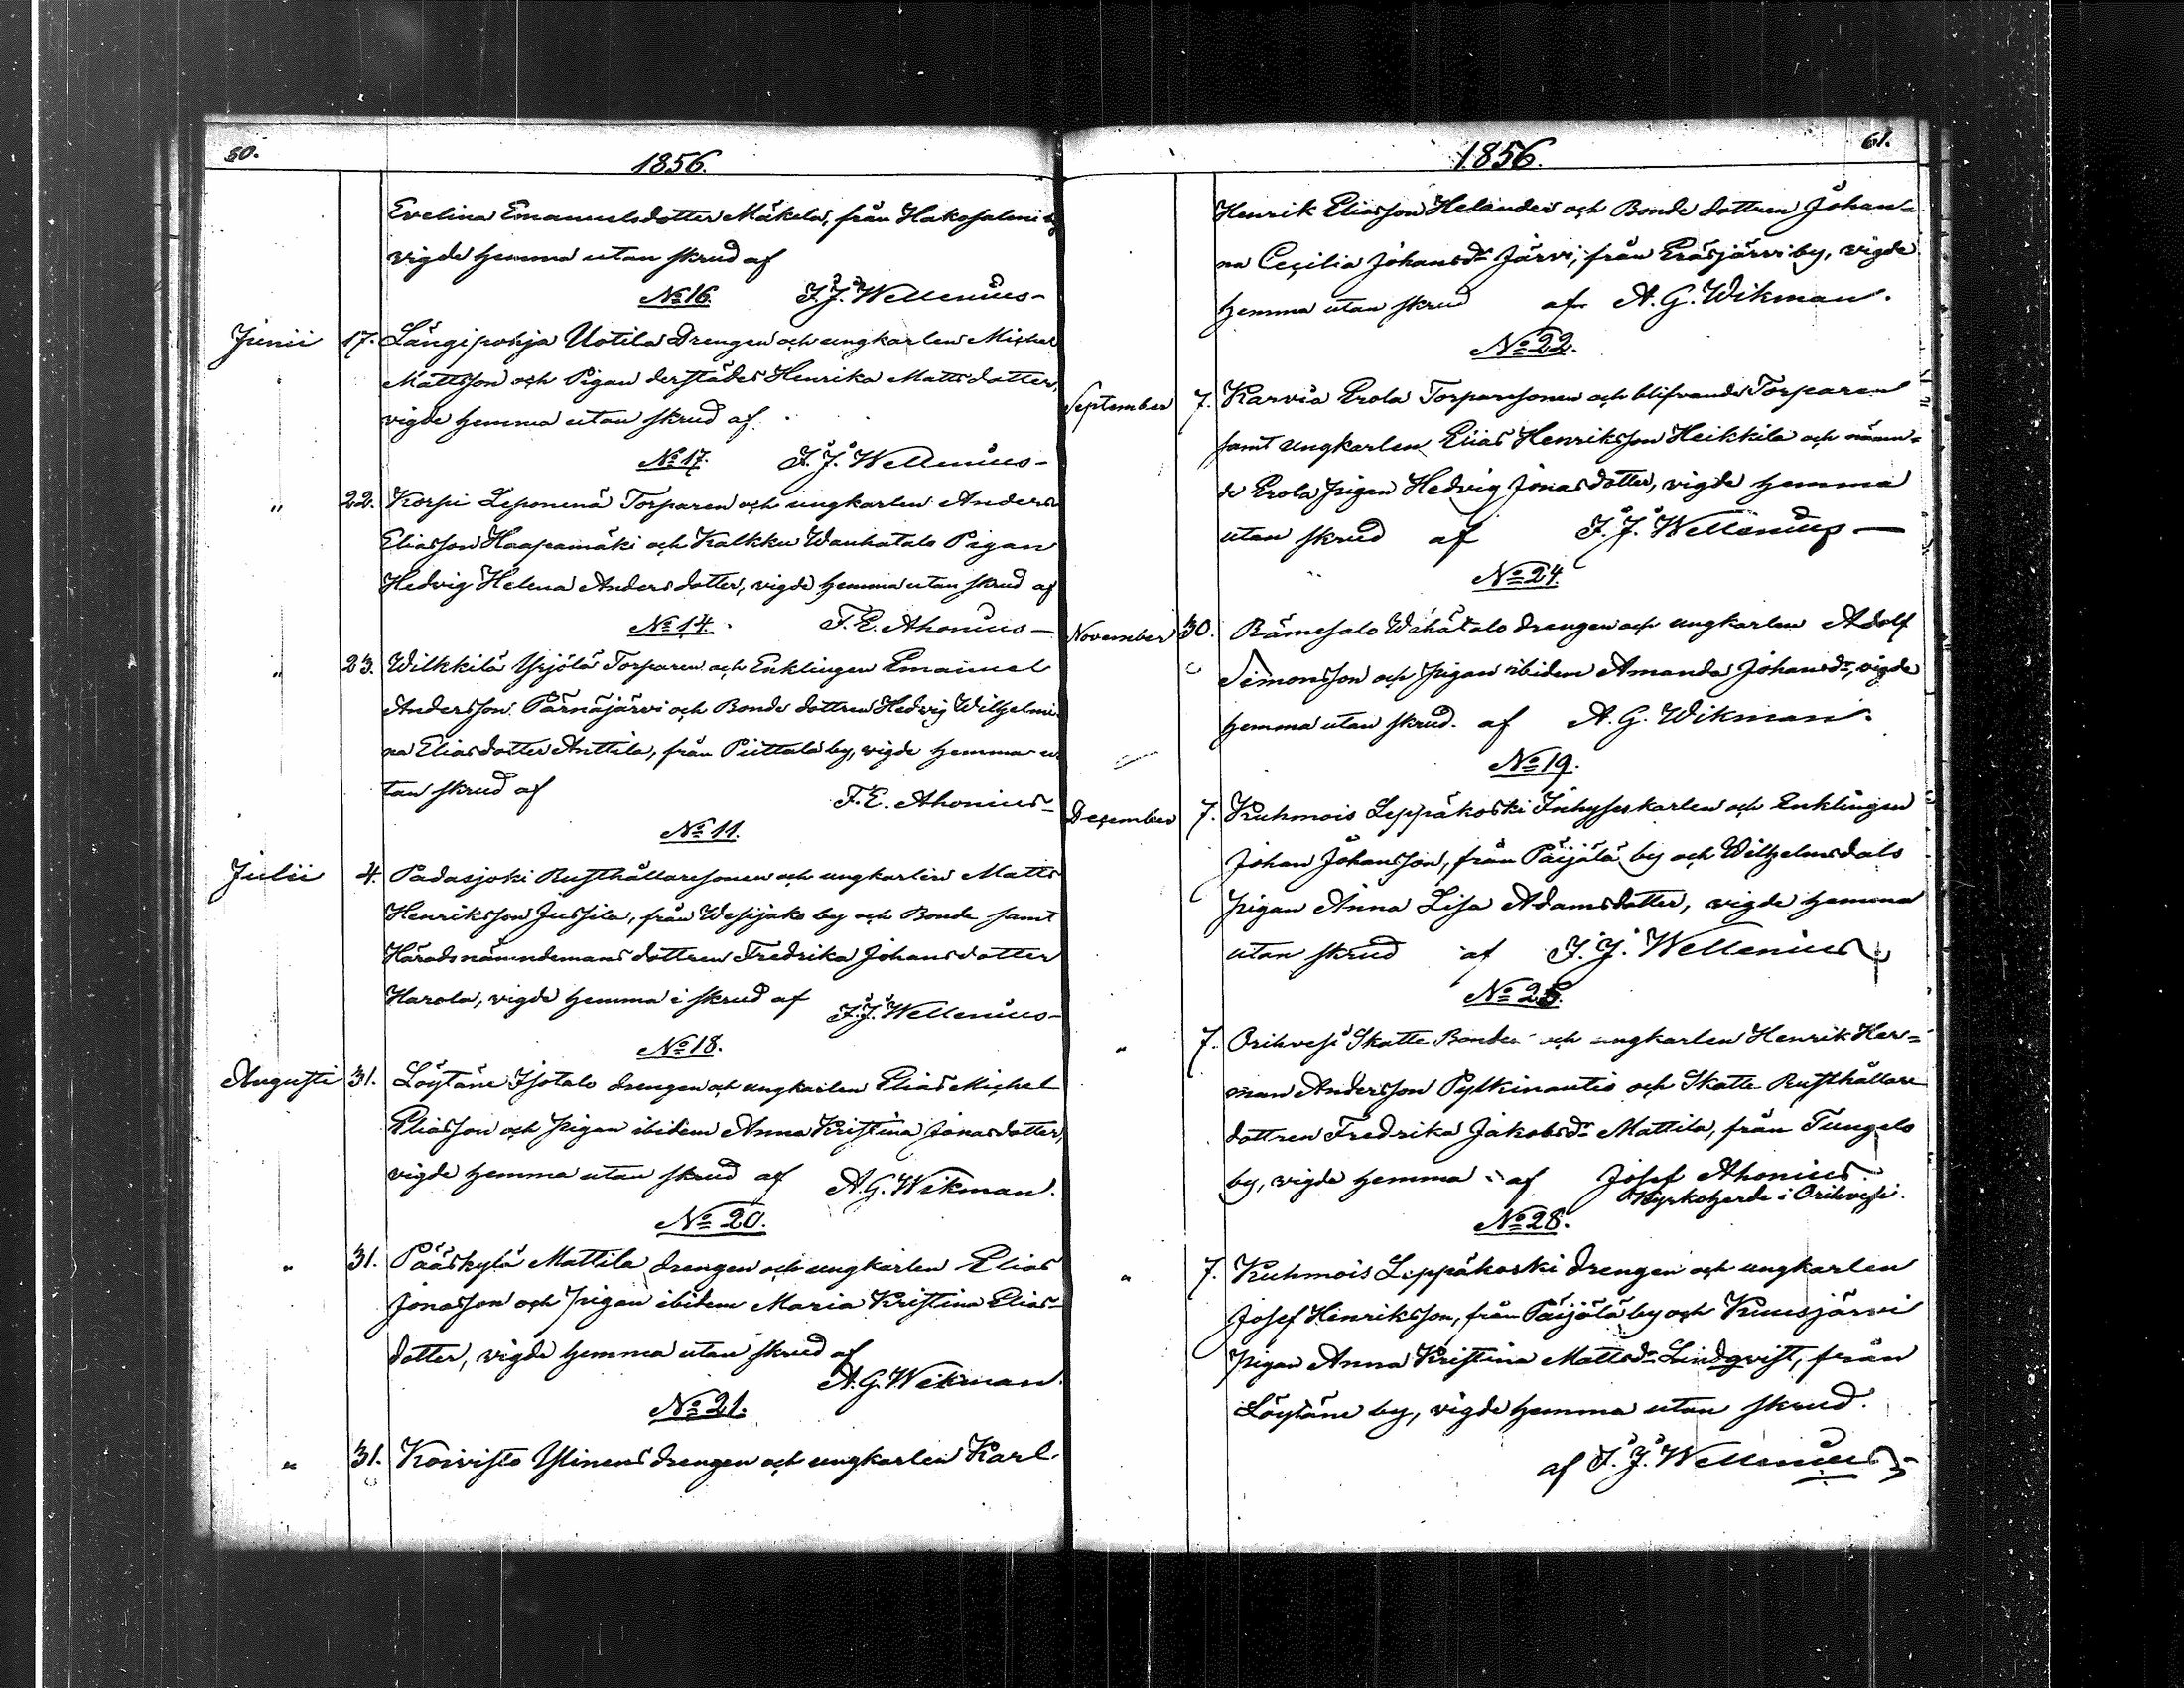 60.
1856.
Evelina Emanuelsdotter Mäkelä, från Hakosalmi by
vigde hemma utan skrud af
No 16. J. J. Wellenius
Junii 17. Längipohja Uotila Drengen och ungkarlen Michel
Mattsson och Pigan derstädes Henrika Mattsdotter,
vigde hemma utan skrud af
No 17. J. J. Wellenius
" 22. Korpi Leponemä Torparen och ungkarlen Anders
Eliasson Haapamäki och Kalkku Wanhatalo Pigan
Hedvig Helena Andersdotter, vigde hemma utan skrud af
No 14. F. E. Ahonius
" 23. Wilkkilä Yrjölä Torparen och Enklingen Emanuel
Andersson Pärnäjärvi och Bonde dottren Hedvig Wilhelmi-
na Eliasdotter Anttila, från Piittala by, vigde hemma u-
tan skrud af F. E. Ahonius
No 11.
Julii 4. Padasjoki Rusthållaresonen och ungkarlen Matts
Henriksson Jussila, från Wesijako by och Bonde samt
Häradsnämndemans dottren Fredrika Johansdotter
Harola, vigde hemma i skrud af J. J. Wellenius
No 18.
Augusti 31. Löytäne Isotalo drengen och ungkarlen Elias Michel
Eliasson och pigan ibidem Anna Kristina Jonasdotter,
vigde hemma utan skrud af A. G. Wikman.
No 20.
" 31. Pääskylä Mattila drengen och ungkarlen Elias
Jonasson och pigan ibidem Maria Kristina Elias-
dotter, vigde hemma utan skrud af
A. G. Wikman.
No 21.
" 31. Koivisto Ylinens drengen och ungkarlen Karl
1856.
61.
Henrik Eliasson Helander och Bonde dottren Johan-
na Cecilia Johansdr Järvi, från Eräsjärvi by, vigde
hemma utan skrud af A. G. Wikman.
No 22.
September 7. Karvia Erola Torparesonen och blifvande Torparen
samt ungkarlen Elias Henriksson Heikkilä och nämn-
de Erola pigan Hedvig Jonasdotter, vigde hemma
utan skrud af J. J. Wellenius
No 24.
November 30. Rämesalo Wähätalo drengen och ungkarlen Adolf
Simonsson och pigan ibidem Amanda Johansdr, vigde
hemma utan skrud af A. G. Wikman.
No 19.
December 7. Kuhmois Leppäkoski Inhyseskarlen och Enklingen
Johan Johansson, från Päijälä by och Wilhelmsdals
pigan Anna Lisa Adamsdotter, vigde hemma
utan skrud af J. J. Wellenius
No 25.
" 7. Orihvesi Skatte Bonden och ungkarlen Henrik Her-
man Andersson Pylkinautio och Skatte Rusthållare
dottren Fredrika Jakobsdr Mattila, från Tungelo
by, vigde hemma af Josef Ahonius.
Kyrkoherde i Orihvesi.
No 28.
" 7. Kuhmois Leppäkoski drengen och ungkarlen
Josef Hinriksson, från Päijälä by och Kuusjärvi
pigan Anna Kristina Mattsdr Lindqvist, från
Löytäne by, vigde hemma utan skrud.
af J. J. Wellenius